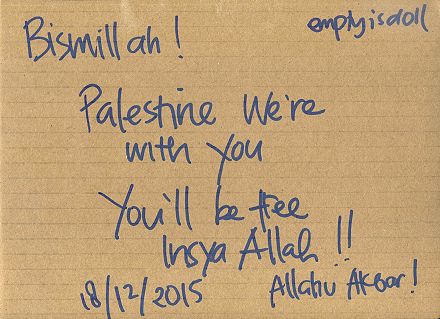 Bismillah!
emptyisdoll
Palestine We're
with you
You'll be free
Insya Allah!!
18/12/2015
Allahu Akbar!